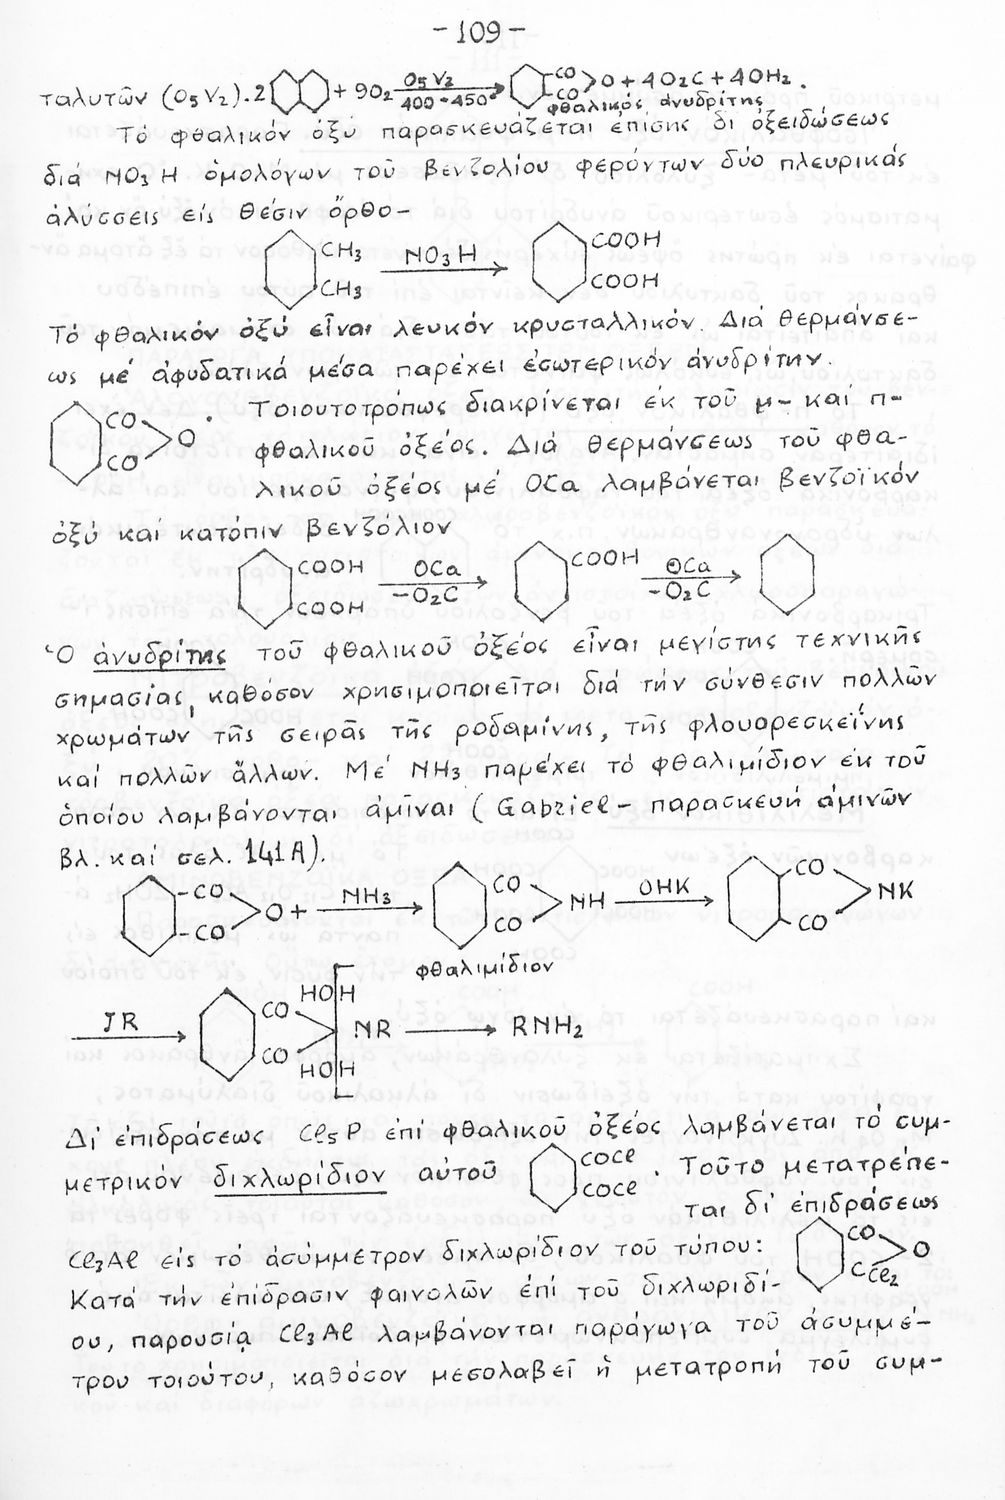 -109-
ταλυτῶν (O5V2). 2 + 9O2 O5V2 400-450° CO CO O + 4O2C + 4OH2.
φθαλικός ἀνυδρίτης
Τό φθαλικόν ὀξύ παρασκευάζεται ἐπίσης δι' ὀξειδώσεως
διά NO3H ὁμολόγων τοῦ βενζολίου φερόντων δύο πλευρικάς
ἁλύσσεις εἰς θέσιν ὄρθο-
CH3 CH3 NO3H COOH COOH
Τό φθαλικόν ὀξύ εἶναι λευκόν κρυσταλλικόν. Διά θερμάνσε-
ως μέ ἀφυδατικά μέσα παρέχει ἐσωτερικόν ἀνυδρίτην.
CO CO O . Τοιουτοτρόπως διακρίνεται ἐκ τοῦ μ- καί π-
φθαλικοῦ ὀξέος. Διά θερμάνσεως τοῦ φθα-
λικοῦ ὀξέος μέ OCa λαμβάνεται βενζοϊκόν
ὀξύ καί κατόπιν βενζόλιον
COOH COOH OCa -O2C COOH OCa -O2C
Ὁ ἀνυδρίτης τοῦ φθαλικοῦ ὀξέος εἶναι μεγίστης τεχνικῆς
σημασίας, καθόσον χρησιμοποιεῖται διά τήν σύνθεσιν πολλῶν
χρωμάτων τῆς σειρᾶς τῆς ροδαμίνης, τῆς φλουορεσκεΐνης
καί πολλῶν ἄλλων. Μέ NH3 παρέχει τό φθαλιμίδιον ἐκ τοῦ
ὁποίου λαμβάνονται ἀμῖναι (Gabriel- παρασκευή ἀμινῶν
βλ. καί σελ. 141Α).
CO CO O + NH3 CO CO NH OHK CO CO NK
φθαλιμίδιον
JR HO H CO CO NR HO H RNH2
Δι' ἐπιδράσεως Cl5P ἐπί φθαλικοῦ ὀξέος λαμβάνεται τό συμ-
μετρικόν διχλωρίδιον αὐτοῦ COCl COCl . Τοῦτο μετατρέπε-
ται δι' ἐπιδράσεως
Cl3Al εἰς τό ἀσύμμετρον διχλωρίδιον τοῦ τύπου: CO CCl2 O
Κατά τήν ἐπίδρασιν φαινολῶν ἐπί τοῦ διχλωριδί-
ου, παρουσίᾳ Cl3Al λαμβάνονται παράγωγα τοῦ ἀσυμμέ-
τρου τοιούτου, καθόσον μεσολαβεῖ ἡ μετατροπή τοῦ συμ-